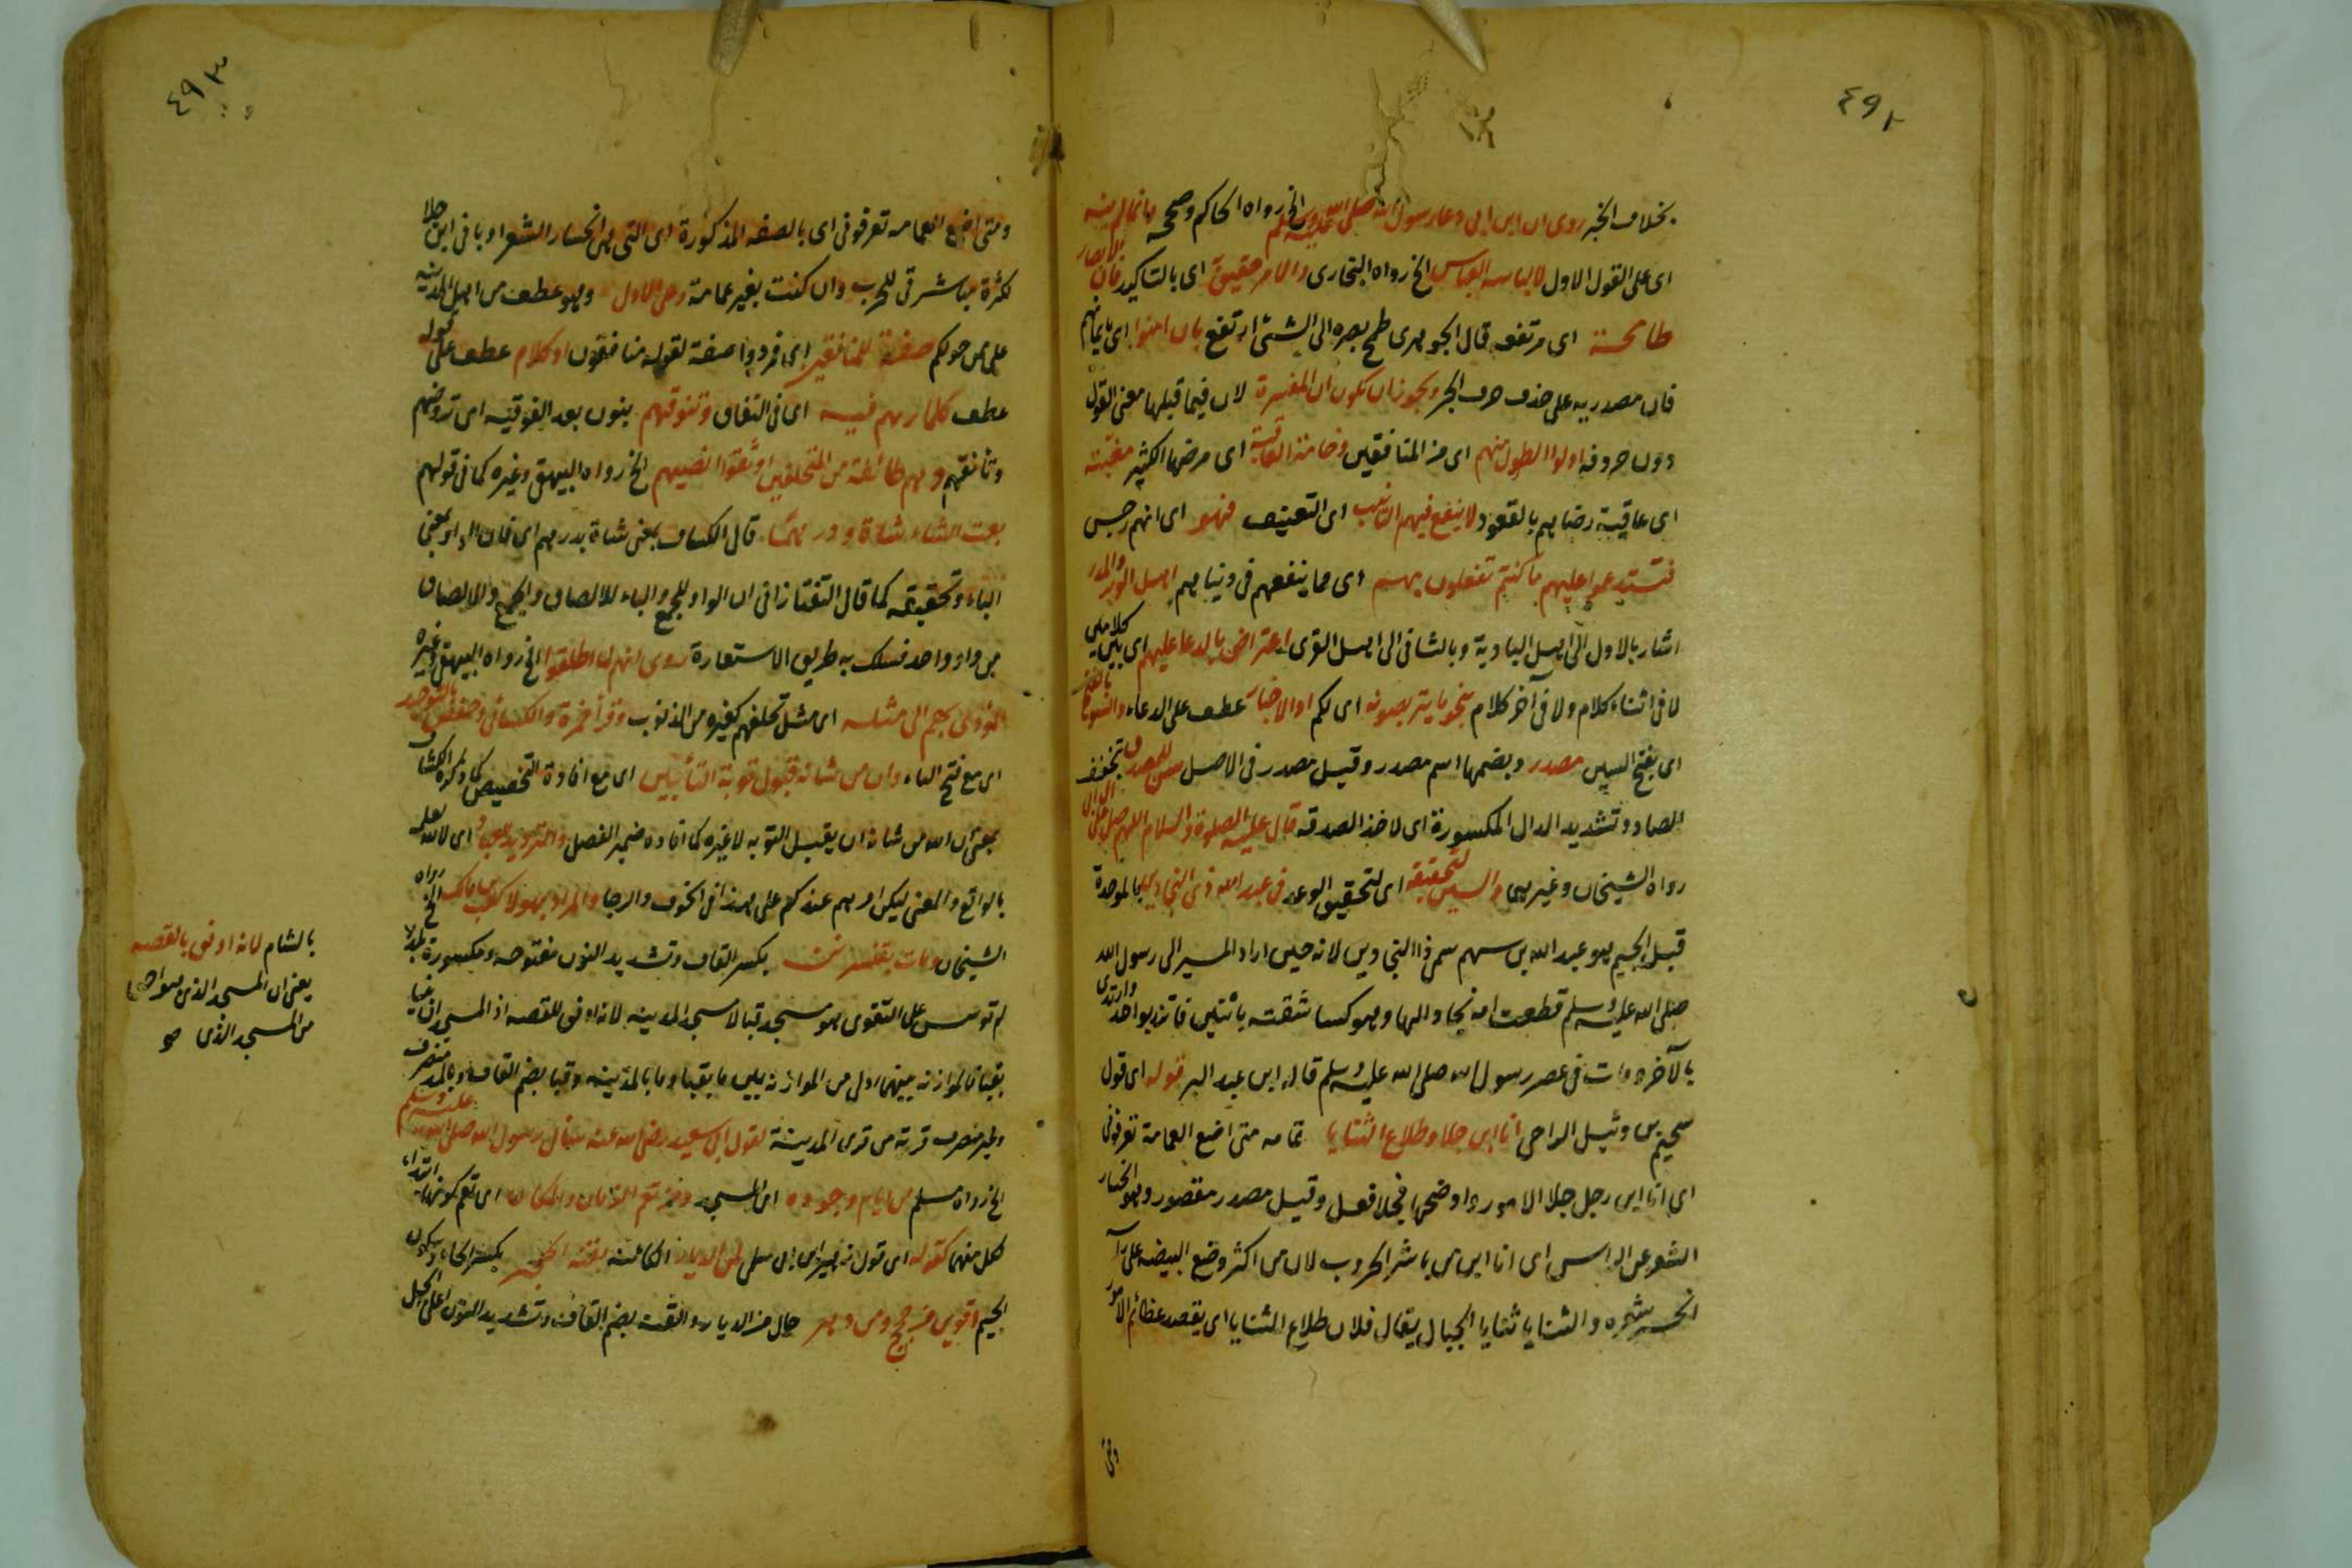 ٤٩٢
بخلاف الخبر روى ان ابن ابى دعا رسول الله صلى الله عليه وسلم الخ رواه الحاكم وصححه
اى على القول الاول لالباسه العباس الخ رواه البخارى والامر حقيق اى بالتاكيد فان
طامحة اى مرتفعه قال الجوهرى طمح بصره الى الشئ ارتفع بان امنوا اى بايمانهم
فان مصدريه على حذف حرف الجر ويجوز ان يكون ان المفسرة لان فيما قبلها معنى القول
دون حروفه اولوا الطول منهم اى من المنافقين وخامة العاقبة اى مرضها الكثير مغبته
اى عاقبة رضاهم بالقعود لا ينفع فيهم التانيب اى التعنيف فهو اى انهم رجس
فتستديموا عليهم ما كنتم تفعلون بهم اى مما ينفعهم فى دنياهم اهل الوبر والمدر
اشار بالاول الى اهل البادية وبالثانى الى اهل القرى اعتراض بالدعا عليهم اى بين كلامين
لا فى اثناء كلام ولا فى آخر كلام بنحو ما يتربصونه اى لكم او الاخبار عطف على الدعاء والسوء بالفتح
اى بفتح السين مصدر وبضمها اسم مصدر وقيل مصدر فى الاصل للمصدق بتخفف
الصاد وتشديد الدال المكسورة اى لاخذ الصدقه قال عليه الصلوة والسلام اللهم صل على ال ابى
رواه الشيخان وغيرهما والسين لتحقيقه اى لتحقيق الوعد فى عبد الله ذى البجادين بالموحدة
قبل الجيم هو عبد الله بن سهم سمى ذا البجادين لانه حين اراد المسير الى رسول الله
صلى الله عليه وسلم قطعت امه بجادا لها وهو كسا شقته باثنين فاتزر بواحد وارتدى
بالآخر ومات فى عصر رسول الله صلى الله عليه وسلم قاله ابن عبد البر قوله اى قول
سحيم بن وثيل الرياحى انا ابن جلا وطلاع الثنايا تمامه متى اضع العمامة تعرفونى
اى انا ابن رجل جلا الامور واوضحها فجلا فعل وقيل مصدر مقصور وهو انحسار
الشعر عن الراس اى انا ابن من باشر الحروب لان من اكثر وضع البيضه على راسه
انحسر شعره والثنايا ثنايا الجبال يقال فلان طلاع الثنايا اى يقصد عظائم الامور
ومتى
٤٩٣
ومتى اضع العمامه تعرفونى اى بالصفه المذكورة اى التى هى انحسار الشعر او بانى ابن جلا
لكثرة مباشرتى للحرب وان كنت بغير عمامة وعلى الاول وهو عطف من اهل المدينه
على من حولكم صفة للمنافقين اى مردوا صفة لقوله منافقون او كلام عطف على قوله
عطف كلمارهم فيه اى فى النفاق وتنوقهم بنون بعد الفوقيه اى تروضهم
وتانقهم وهم طائفة من المتخلفين اوثقوا انفسهم الخ رواه البيهقى وغيره كما فى قولهم
بعت الشاء شاة ودرهما قال الكشاف بمعنى شاة بدرهم اى فان الواو بمعنى
الباء وتحقيقه كما قال التفتازانى ان الواو للجمع والباء للالصاق والجمع والالصاق
من واد واحد فسلك به طريق الاستعارة روى انهم لما اطلقوا الخ رواه البيهقى وغيره
المؤدى بهم الى مثله اى مثل تخلفهم كغيره من الذنوب وقرأ حمزة والكسائى وحفص بالتوحيد
اى مع فتح التاء وان من شانه قبول توبة التائبين اى مع افادة التخصيص كما ذكره الكشاف
بمعنى ان الله من شانه ان يقبل التوبه لا غيره كما افاده ضمير الفصل والترديد للعباد اى لا لله لعلمه
بالواقع والمعنى ليكن امرهم عندكم على هذا فى الخوف والرجا والمراد بهؤلا كعب بن مالك الخ رواه
الشيخان ومات بقنسرين بكسر القاف وتشديد النون مفتوحه ومكسورة بلد
لم توسس على التقوى هو مسجد قبا لا مسجد المدينه لانه اوفق للقصه اذ المسجد ان بنيا
بقبا فالموازنه بينهما اولى من الموازنه بين ما بقبا وما بالمدينه وقبا بضم القاف وبالمد منصرف
وغير منصرف قرية من قرى المدينة لقول ابى سعيد رضى الله عنه سال رسول الله صلى الله عليه وسلم
الخ رواه مسلم من ايام وجوده اى المسجد ومن تعم الزمان والمكان اى تعم كونها ابتداء
لكل منهما كقوله اى قول زهير بن ابى سلمى لمن الديار الكائنه بقنة الحجر بكسر الحاء وسكون
الجيم اقوين من حجج ومن دهر حال من الديار والقنة بضم القاف وتشديد النون اعلى الجبل
بالشام لانه اوفق بالقصه
يعنى ان المسجد الذى هو احق
من المسجد الذى هو